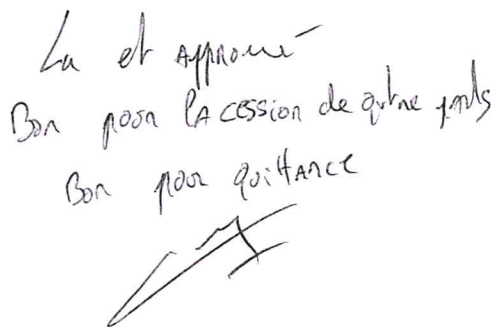 Lu et approuvé
Bon pour la cession de quatre parts
Bon pour quittance